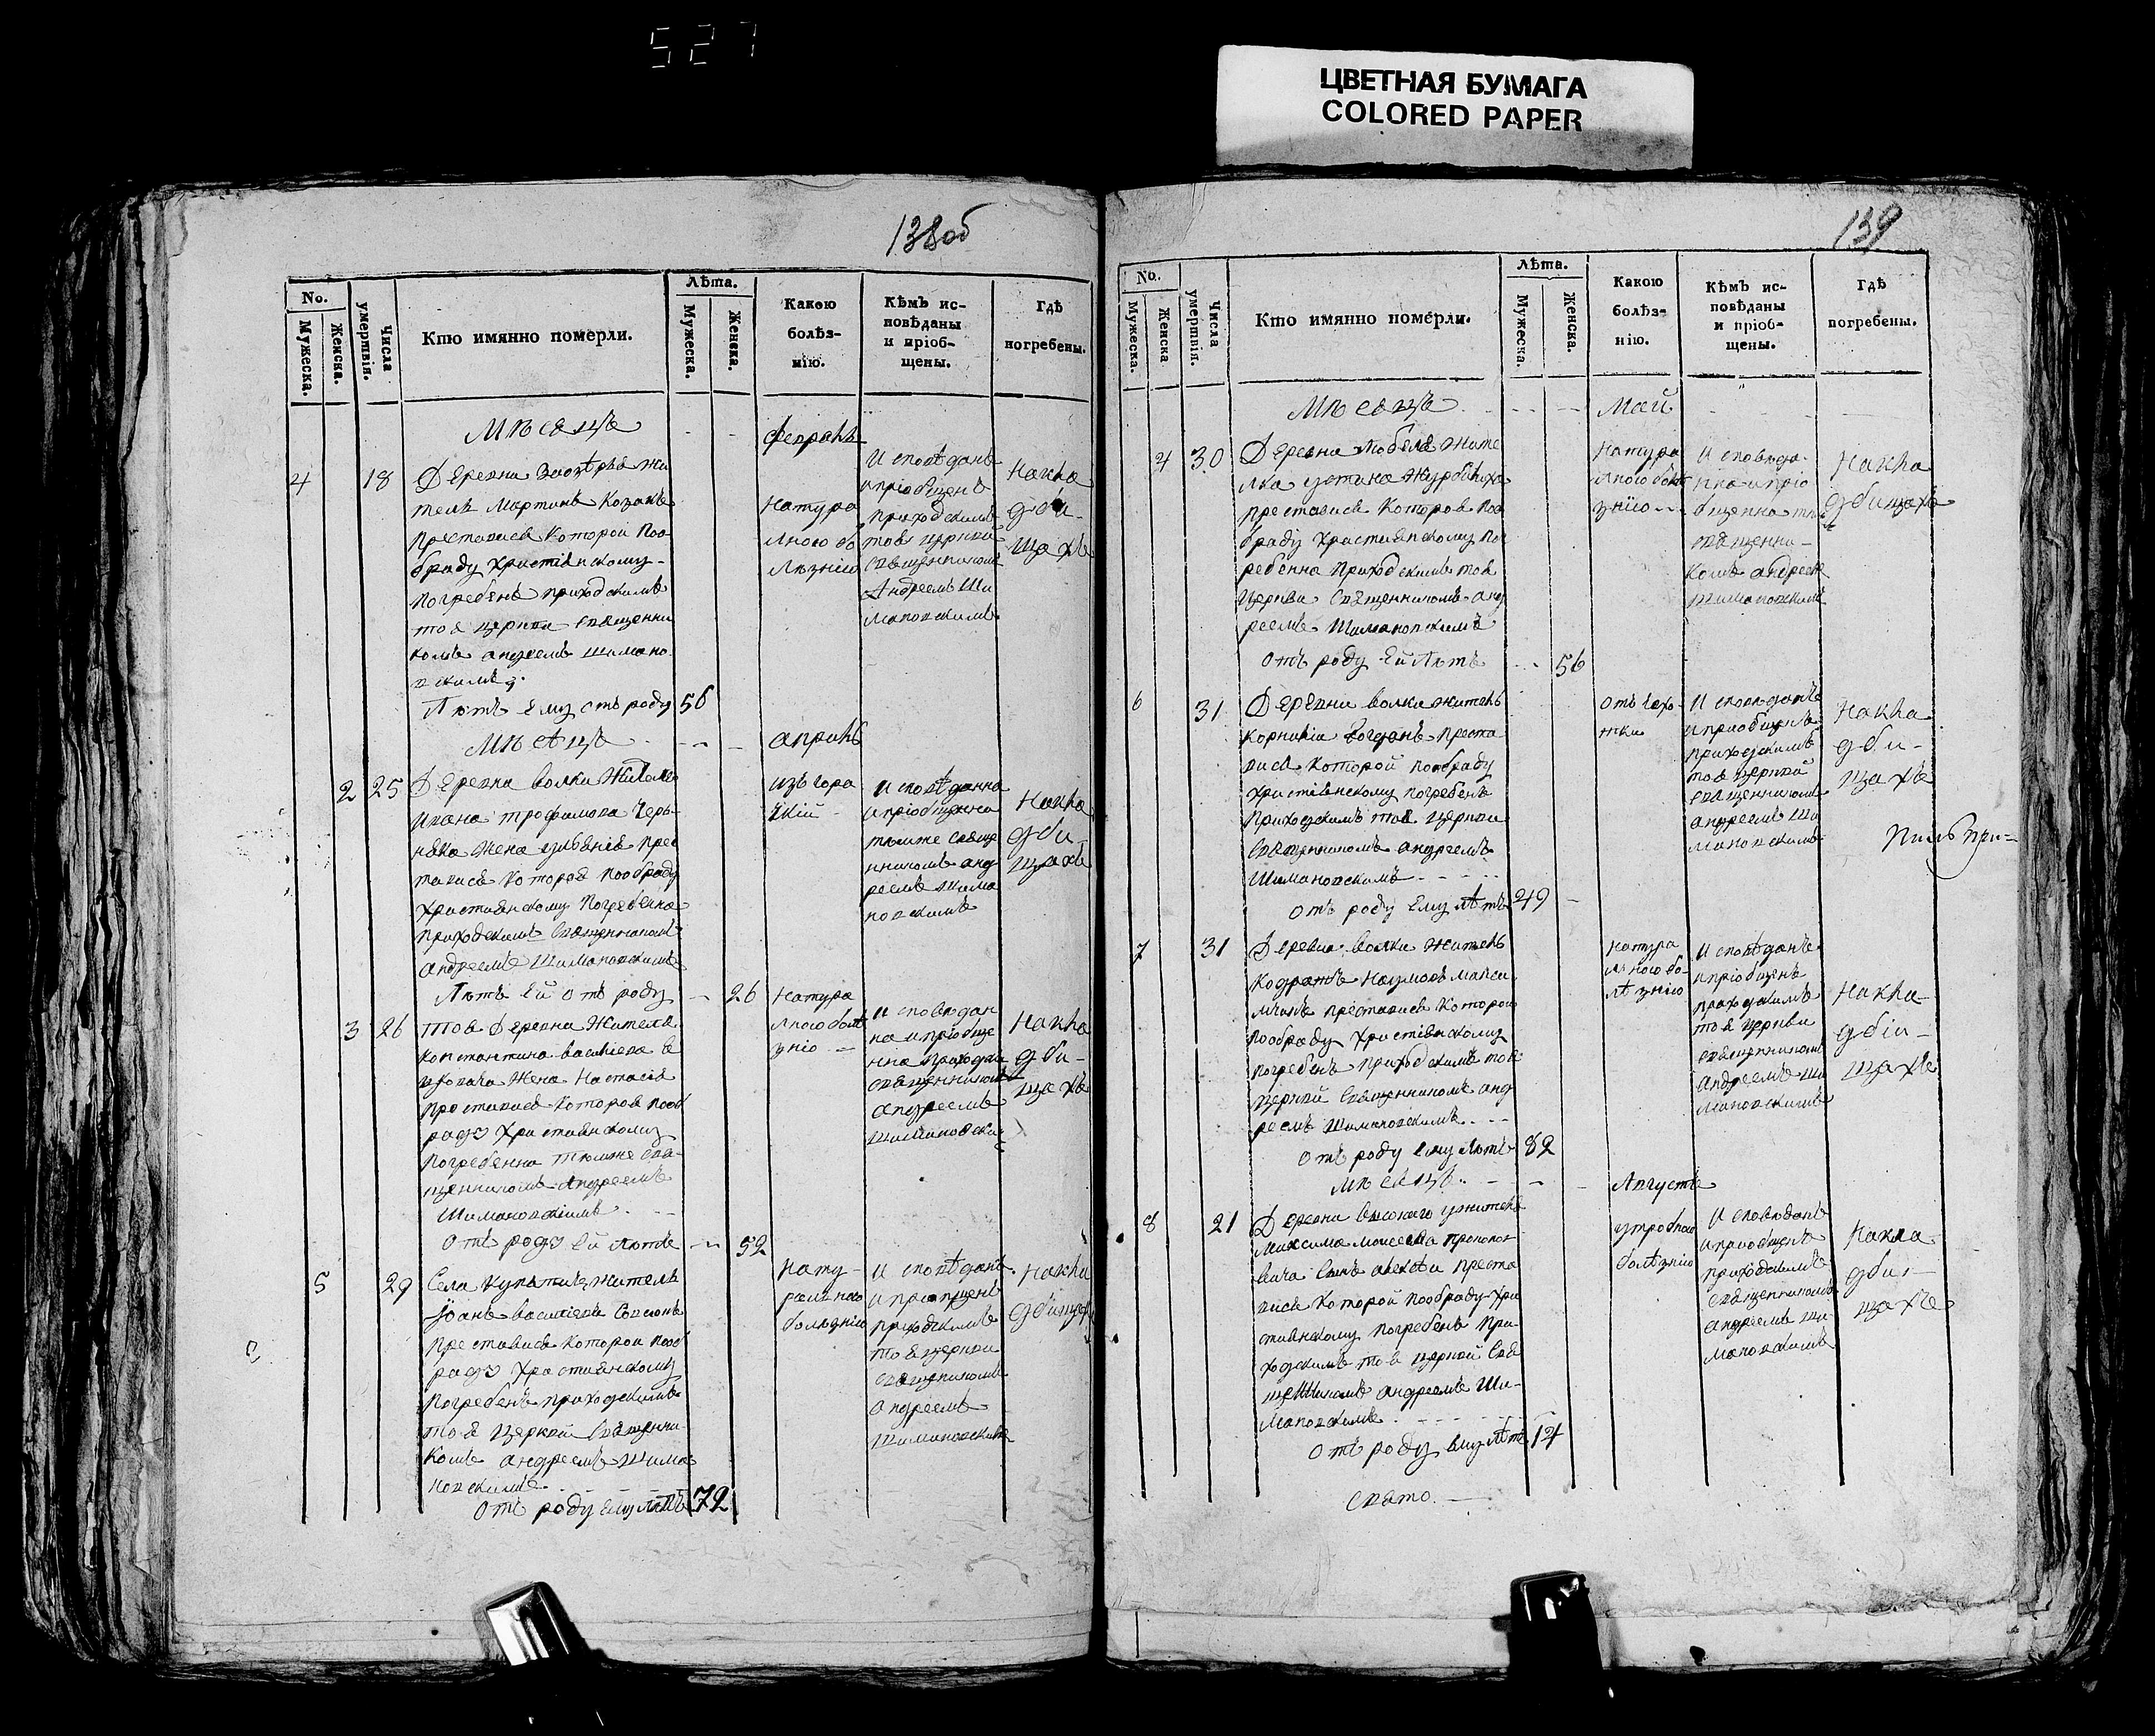 527
ЦВЕТНАЯ БУМАГА
COLORED PAPER
138об
No.
Мужеска.
Женска.
Числа умертвія.
Кто имянно померли.
Лѣта.
Мужеска.
Женска.
Какою болѣз-
нію.
Кѣмъ ис-
повѣданы
и пріоб-
щены.
Гдѣ
погребены.
Мѣсяцъ
4
18
Деревни жи
тель Мартинъ Козакъ
Преставися которой поо
браду христіянскому
погребенъ приходскимъ
тоя церкви священни
комъ андреемъ шимано
вскимъ
Лѣтъ ему отъ роду
56
натура
лною бо
лѣзнію
Исповѣданъ
и пріобщенъ
приходскимъ
тоя церкви
священникомъ
Андреемъ Ши
мановскимъ
Накла
дби-
щахъ
Мѣсяцъ
априль
2
25
Деревни волки жителя
ивана трофимова Черь-
няка жена прес
тавися которая пообраду
християнскому погребенна
приходскимъ священникомъ
андреемъ шимановскимъ
Лѣтъ ей отъ роду
26
изъ горя
Исповѣданна
и пріобщенна
тѣмже свяще
нникомъ анд
реемъ шима
новскимъ
Накла
дби-
щахъ
3
26
тоя Деревни Жителя
константина василіева
жена Настасія
преставися которая пооб
раду християнскому
погребенна тѣмже свя-
щенникомъ андреемъ
Шимановскимъ
отъ роду ей лѣтъ
52
натура
лною болѣ
знію
Исповѣдан
на и пріобще
нна приходским
священникомъ
андреемъ
шимановски
Накла
дби-
щахъ
5
29
Села жителъ
Іоанъ василіевъ
преставися которой пооб
раду християнскому
погребенъ приходскимъ
тоя церкви священни-
комъ андреемъ шима
новскимъ
отъ роду ему лѣтъ
72
нату-
ралною
болѣзнію
Исповѣданъ
и приобщенъ
приходскимъ
тоя церкви
священникомъ
андреемъ
шимановскимъ
Накла
дбищахъ
139
No.
Мужеска.
Женска
Числа умертвія.
Кто имянно померли.
Лѣта.
Мужеска.
Женска.
Какою
болѣз-
нію.
Кѣмъ ис-
повѣданы
и пріоб-
щены.
Гдѣ
погребены.
Мѣсяцъ
Май
4
30
Деревни жите
лка устина
преставися которая поо
браду християнскому пог
ребенна приходскимъ тоя
церкви священникомъ анд
реемъ Шимановскимъ
отъ роду ей лѣтъ
56
натура
лною болѣ
знію
Исповѣда
нна и прі
общенна
священни-
комъ андреем
шимановскимъ
Накла
дбищахъ
6
31
Деревни волки житель
корнилій преста
вися которой пообраду
христіянскому погребенъ
приходскимъ тоя церкви
священникомъ андреемъ
шимановскимъ
отъ роду ему лѣтъ
49
отъ
Исповѣданъ
и приобщенъ
приходскимъ
тоя церкви
священникомъ
андреемъ ши
мановскимъ
Накла
дби-
щахъ
7
31
Деревни волки житель
Кодратъ Наумовъ
преставися которой
пообраду христіянскому
погребенъ приходскимъ тоя
церкви священникомъ анд
реемъ шимановскимъ
отъ роду ему лѣтъ
82
натура
лною бо-
лѣзнію
Исповѣданъ
и пріобщенъ
приходскимъ
тоя церкви
священникомъ
андреемъ ши
мановскимъ
Накла-
дби-
щахъ
Мѣсяцъ
Августъ
8
21
Деревни высокаго
Максима Моисеева
сынъ алексѣй преста
вися которой пообраду хри
стиянскому погребенъ при-
ходскимъ тоя церкви свя
щенникомъ андреемъ ши-
мановскимъ
отъ роду ему лѣтъ
14
утробною
болѣзнію
Исповѣданъ
и приобщенъ
приходскимъ
священникомъ
андреемъ ши-
мановскимъ
Накла
дби-
щахъ